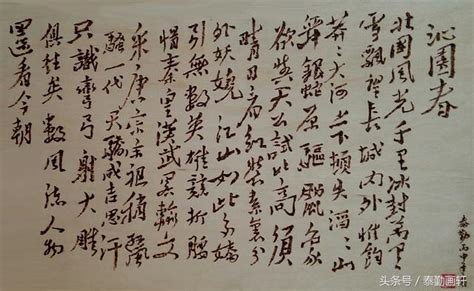 沁园春
北國风光千里冰封萬里
雪飘望长城内外惟餘
莽々大河上下顿失滔々山
舞銀蛇原驱蠟象
欲與天公试比高须
晴日看红装素裹分
外妖娆江山如此多娇
引無数英雄競折腰
惜秦皇漢武畧输文
采唐宗宋祖稍遜風
騷一代天骄成吉思汗
只識彎弓射大雕
俱往矣数風流人物
還看今朝
泰勤丙申
头条号/泰勤画轩